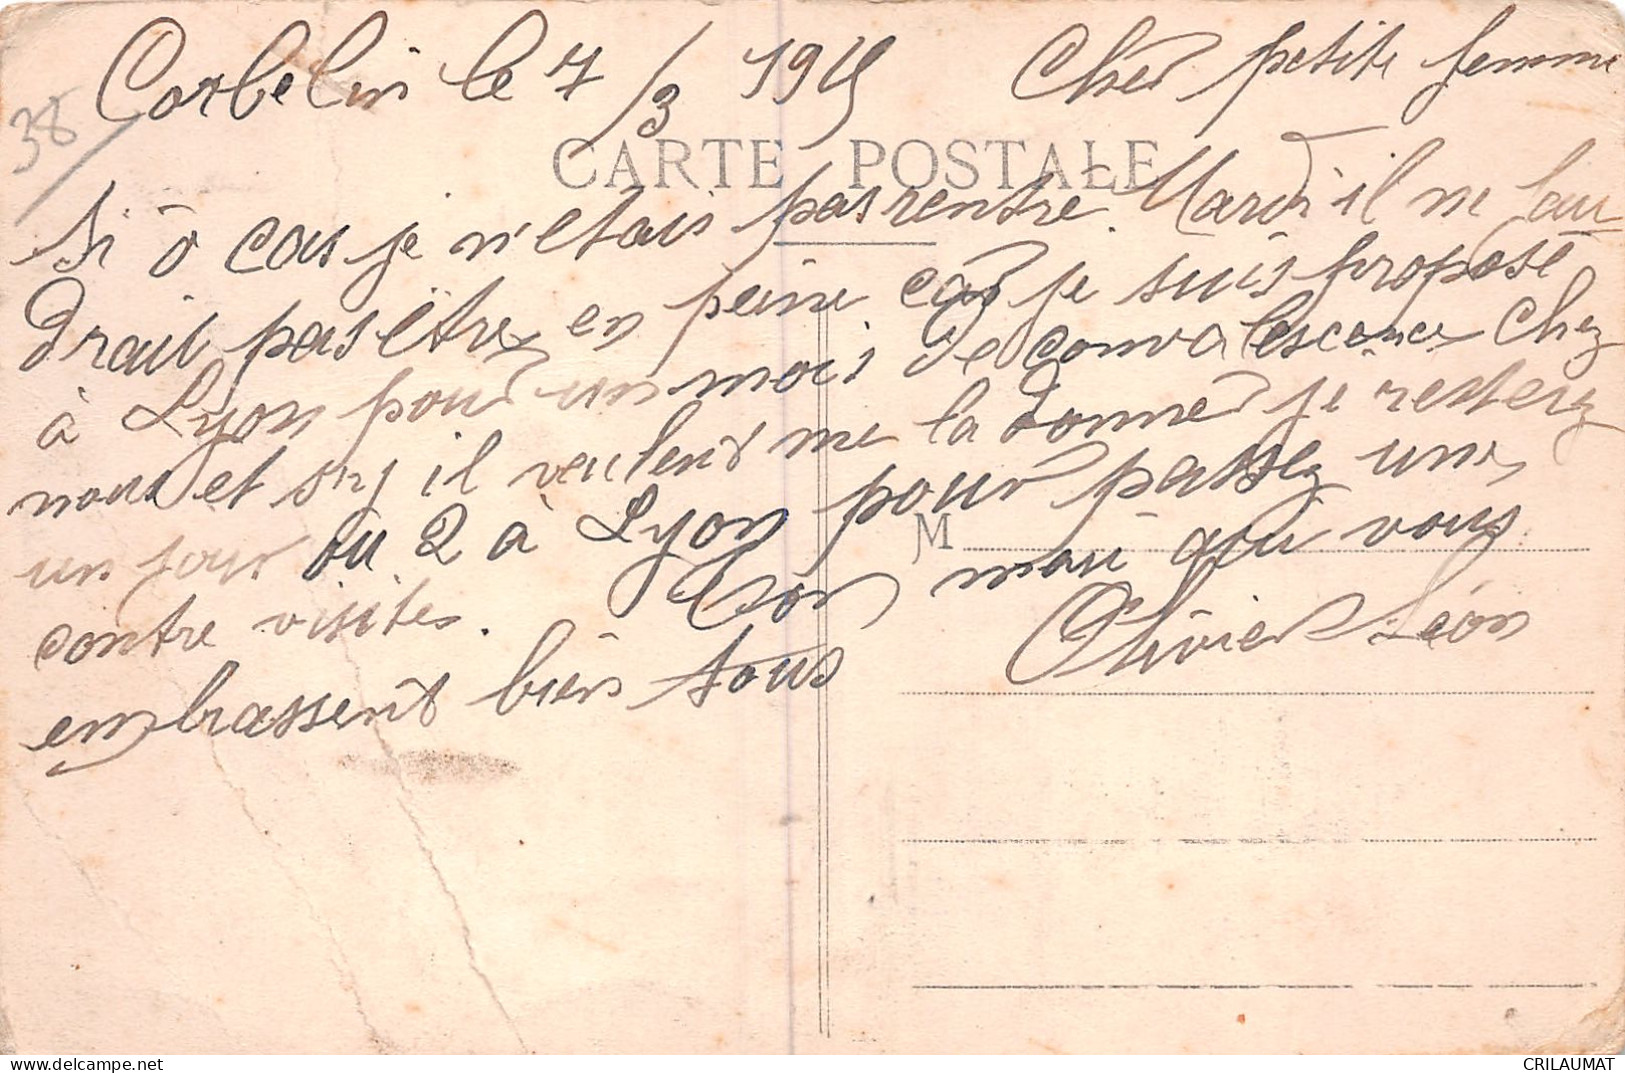 38
Corbelin le 7/3 1915 Cher petite femme
CARTE POSTALE
Si ô cas je n'etais pas rentre. Mardi il ne fau
drait pas être en peine car je suis proposé
à Lyon pour un mois de convalescence chez
nous et s'y il veulent me la donner je resterez
un jour ou 2 à Lyon pour passez une
contre visites. Ton mari qui vous
M
embrassent bien tous Olivier Léon
CRILAUMAT